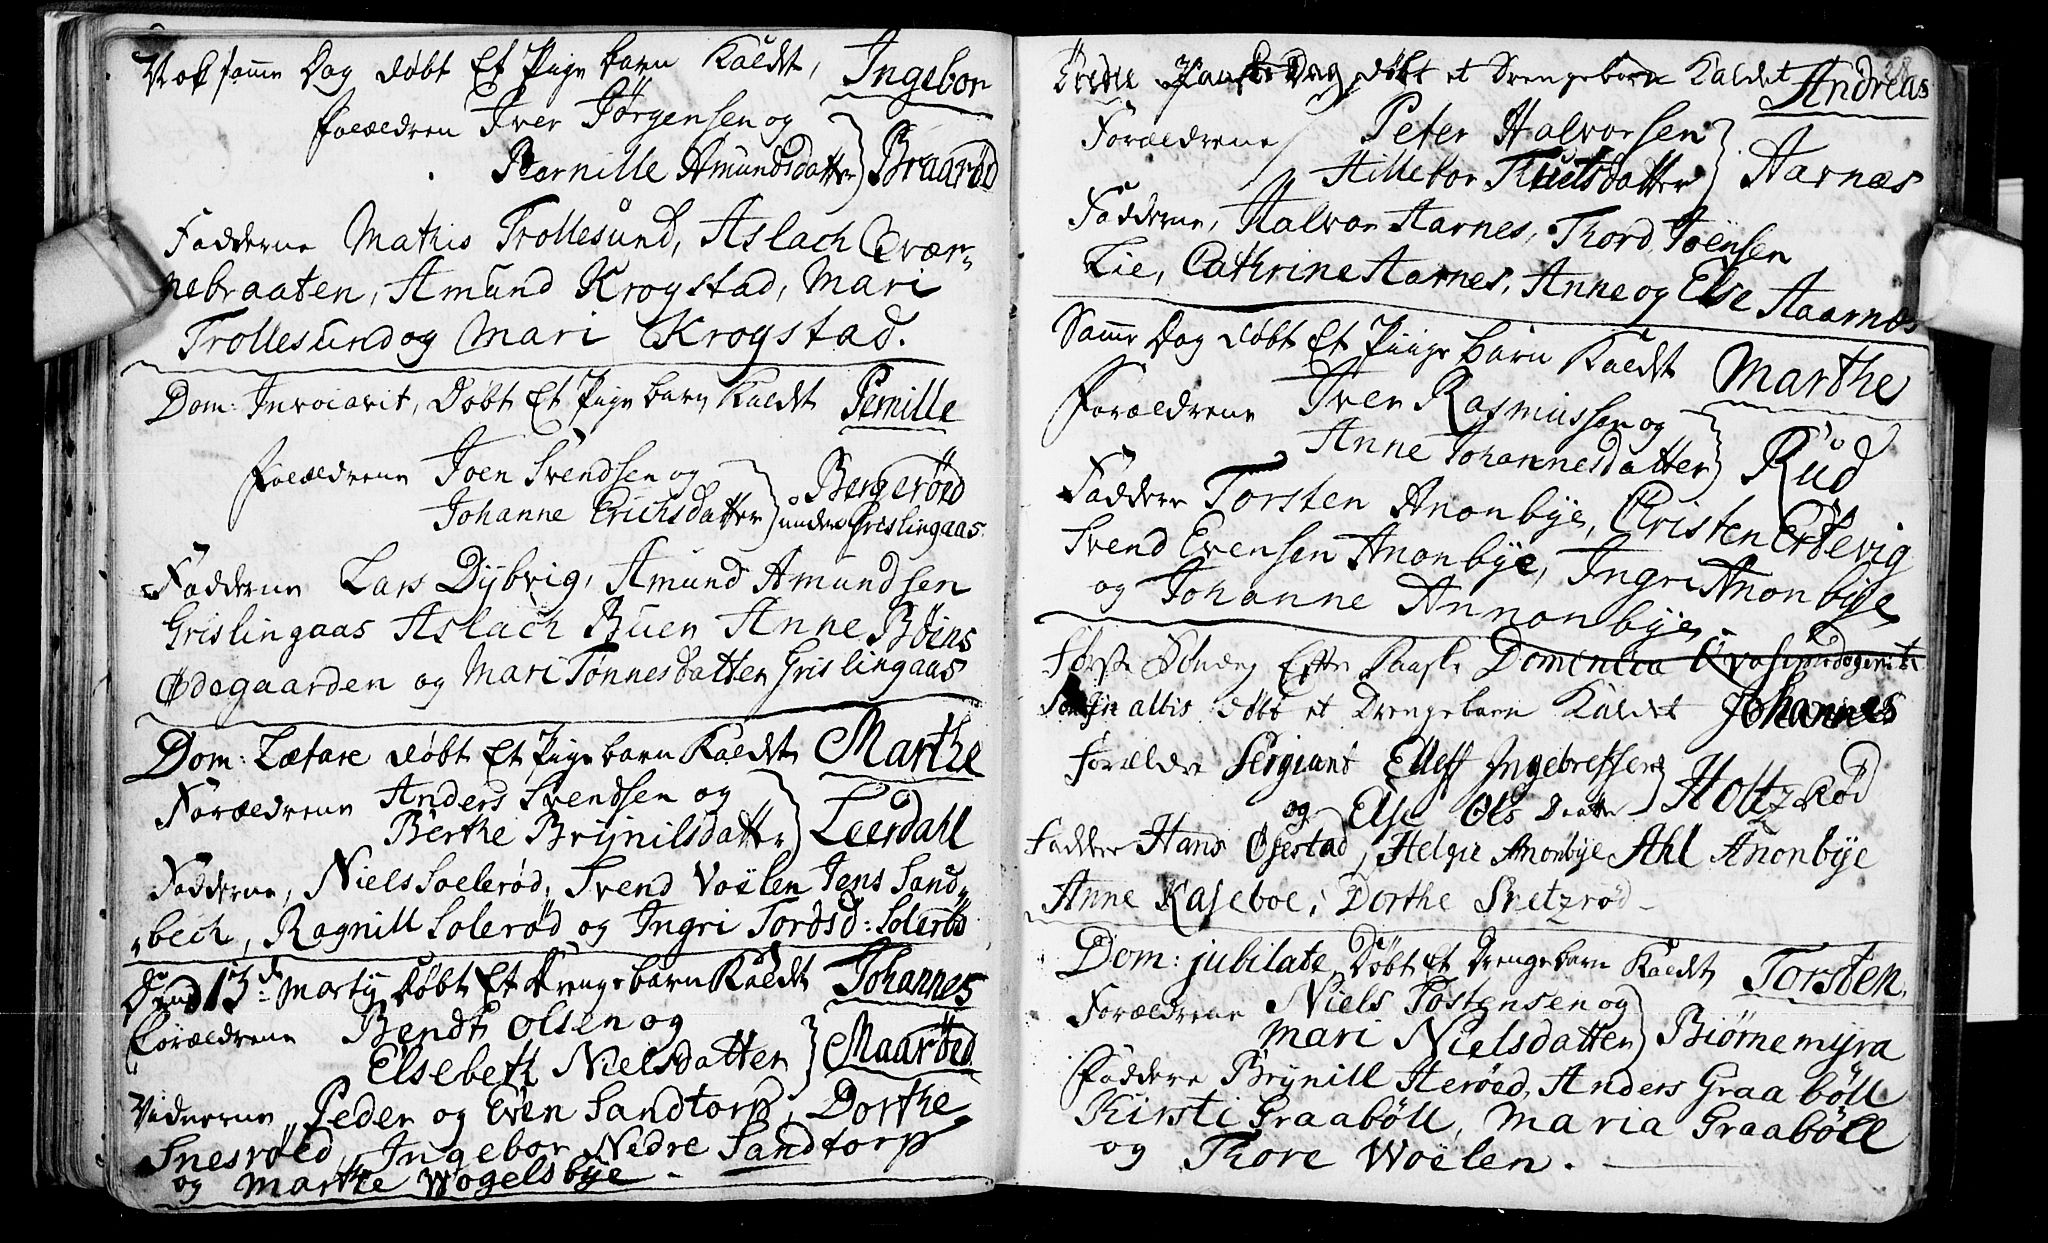 samme Dag døbt Et Pige barn Kaldt, Ingebor
Iver Jørgensen og
Pernille Amundsdatter Braarød
Fadderne Mathis Trollesund, Aslach Qvær-
nebraaten, Amund Krogstad, Mari
Trollesund og Mari Krogstad.
Dom: Invocavit, Døbt Et Pige barn Kaldt Pernille
Joen Svendsen og Bergerøed
Johanne Erichsdatter under Grislingaas
Fadderne Lars Dybvig, Amund Amundsen
Grislingaas Aslach Buen Anne Bøens
Ødegaarden og Mari Tønnesdatter Grislingaas
Dom: Lætare døbt Et Pige barn Kaldt Marthe
Forældrene Anders Svendsen og
Berthe Brynilsdatter Leerdahl
Fadderne, Niels Soelerød, Svend Voelen Jens Sand
bech, Ragnill Solerød og Ingri Tordsd: Solerød
Dend 13de Martij døbt Et Drengebarn Kaldt Johannes
Forældrene Bendt Olsen og
Elsebeth Nielsdatter Maarød
Vidnerne Peder og Even Sandtorp, Dorthe
Snesrøed, Ingebor Nedre Sandtorp
og Marthe Wogelsbye -
28
Tredie Paaske Dag døbt et Drengebarn Kaldet Andreas
Forældrene Peter Halvorsen
Hillebor Knutsdatter Aarnæs
Fadderne, Halvor Aarnes, Thord Joensen
Lie, Cathrine Aarnes, Anne og Else Aaarnæs
Samme Dag døbt Et Piige barn Kaldt Marthe
Forældrene Iver Rasmussen og
Anne Johannesdatter Rud
Faddere Torsten Anonbye, Christen Erdevig
Svend Evensen Anonbye, Ingri Anonbye
og Johanne Annonbye
Første Søndag Efter Paaske
in albis døbt et Drengebarn Kaldet Johannes
Forældre Sergiant Elleff Ingebretsen
og Else Ols Datter Holtzrød
Faddere Hans Øjestad, Helgie Anonbye Ahl Anonbye
Anne Kaseboe, Dorthe Snetzrød -
Dom: jubilate Døbt Et Drengebarn Kaldt Torsten,
Forældrene Niels Tostensen og
Mari Nielsdatter Biørnemyra
Faddere Brynill Herøed, Anders Graabøll
Kirsti Graabøll, Maria Graabøll
og Thore Woelen.